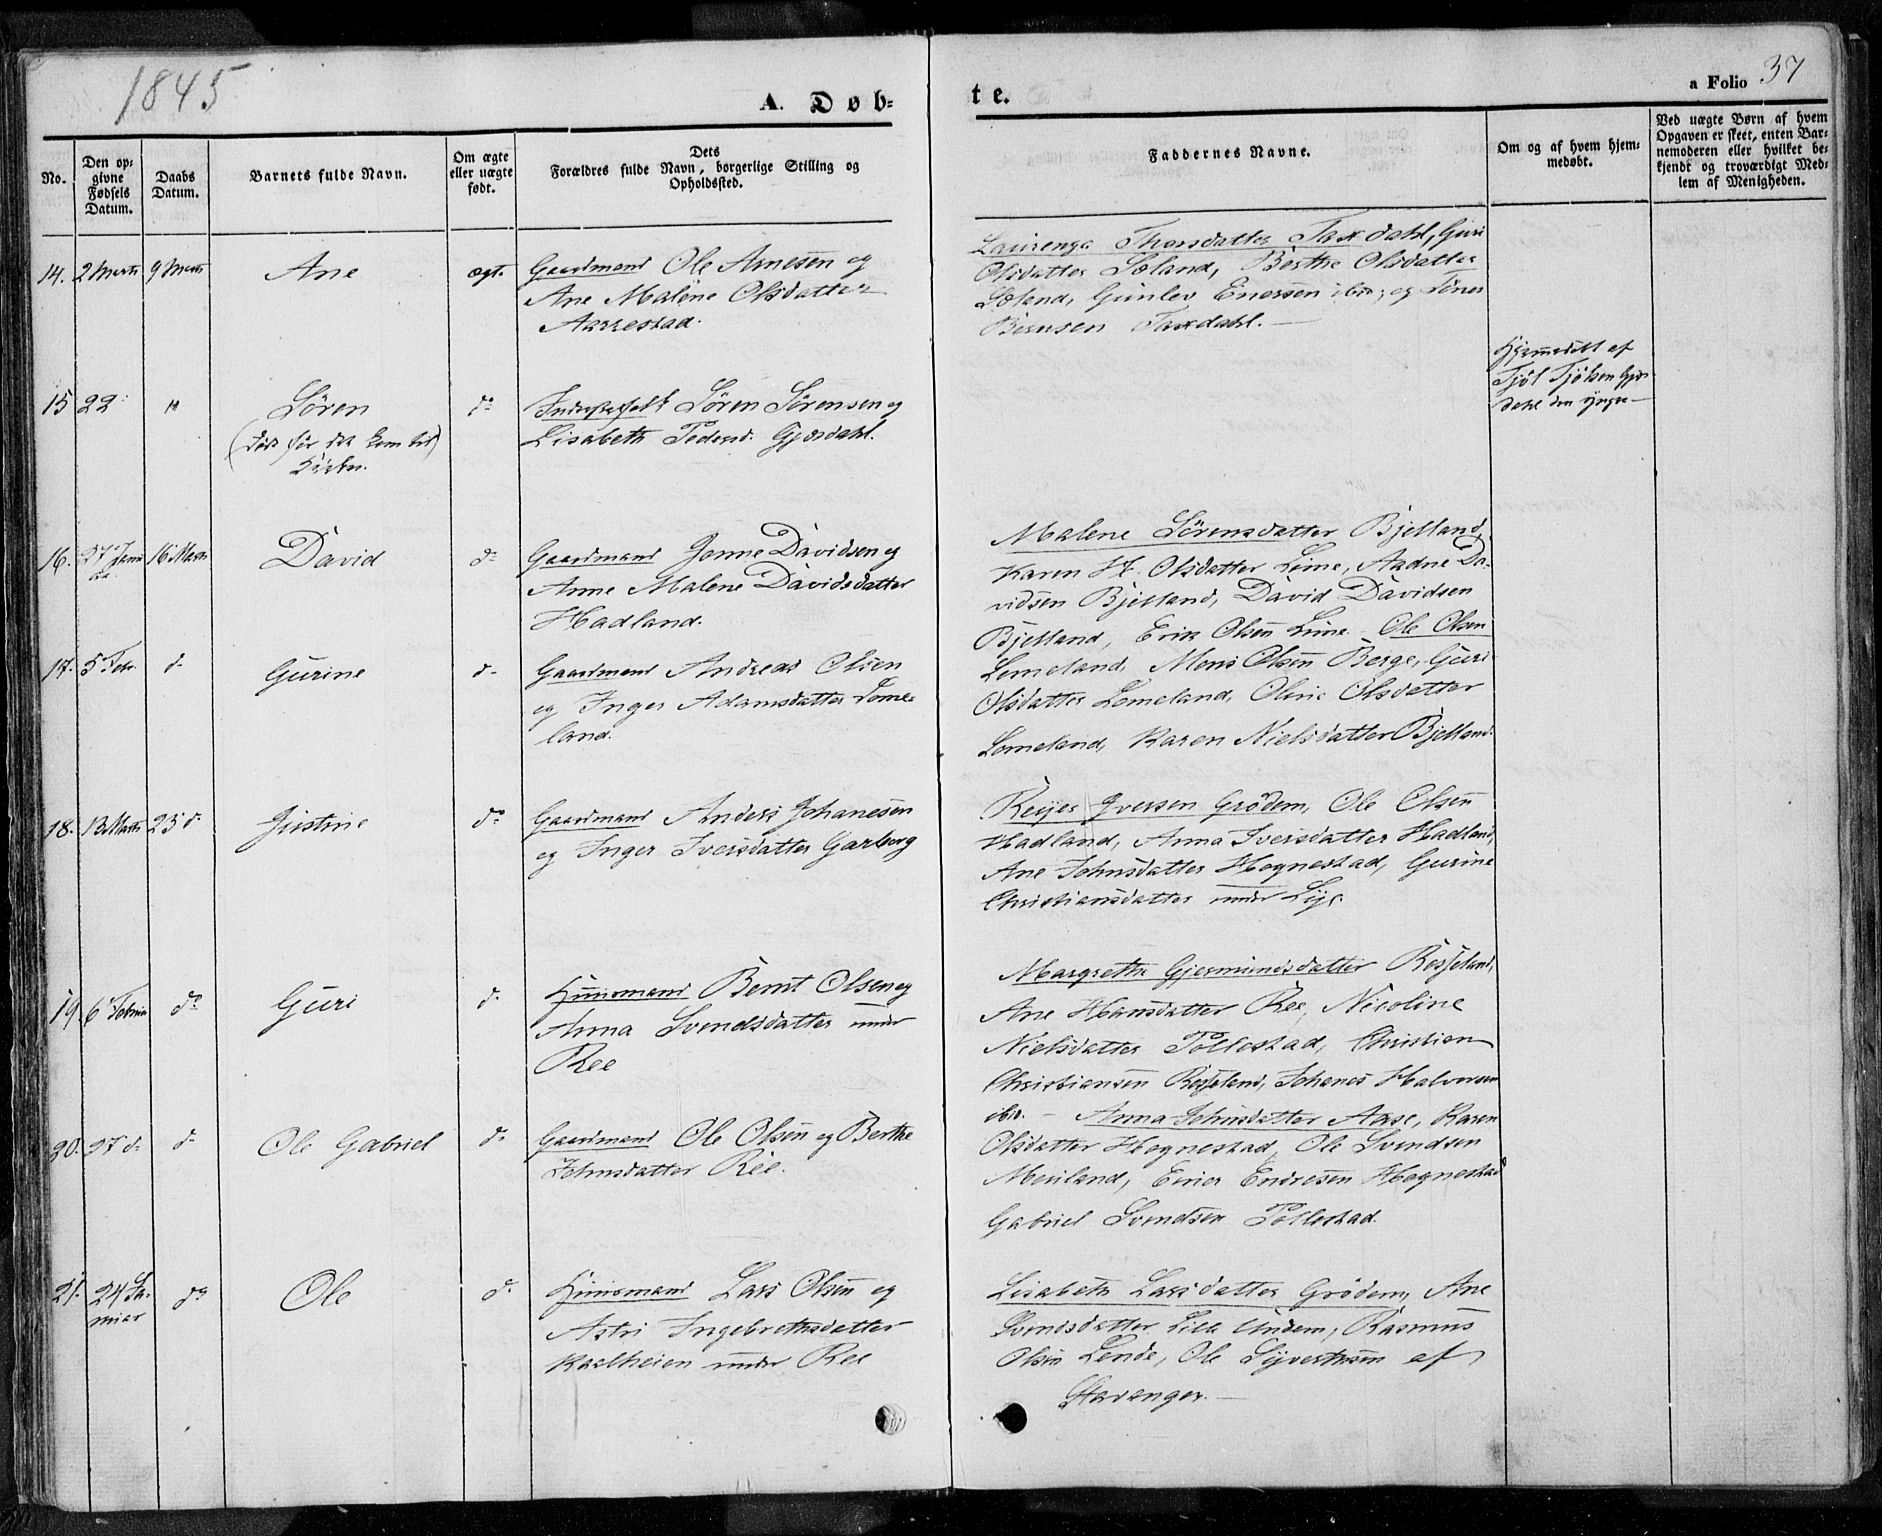 1845
A. Døb-
te.
a Folio 37
No.
Den op-
givne
Fødsels
Datum.
Daabs
Datum.
Barnets fulde Navn.
Om ægte
eller uægte
født.
Dets
Forældres fulde Navn, borgerlige Stilling og
Opholdssted.
Faddernes Navne.
Om og af hvem hjem-
medøbt.
Ved uægte Børn af hvem
Opgaven er skeet, enten Bar-
nemoderen eller hvilket be-
kjendt og troværdigt Med-
lem af Menigheden.
14. 2 Marts 9 Marts Ane ægt.
Gaardmand Ole Arnesen og
Ane Malene Olsdatter
Aarrestad.
Laurenza Thorsdatter Taxdahl, Guri
Olsdatter Sæland, Berthe Olsdatter
Sæland, Gunlev Enersen ibid; og
Bernsen Taxdahl.
15 22 " Søren do
(døde før det kom til
Kirken.
Søren Sørensen og
Lisabeth Pedersd. Gjesdahl.
Hjemmedøbt af
Tjøl Tjølsen Gjes-
dahl den yngre
16. 27 Janu 16 Marts David do
Gaardmand Jonne Davidsen og
Anne Malene Davidsdatter
Hadland.
Malene Sørensdatter Bjelland,
Karen H. Olsdatter Lime, Aadne Da-
vidsen Bjelland, David Davidsen
Bjelland, Erik Olsen Lime.
17. 5 Febr. d- Gurine d-
Gaardmand Andreas Olsen
og Inger Adamsdatter Lome-
land.
Ole Olsen
Lomeland, Mons Olsen Berge, Guri
Olsdatter Lomeland, Oline Olsdatter
Lomeland, Karen Nielsdatter Bjelland.
18. 13 Marts 23 d- Justine do
Gaardmand Anders Johanesen
og Inger Iversdatter Garborg
Reijer Iversen Grødem, Ole Olsen
Hadland, Anna Iversdatter Hadland,
Ane Johnsdatter Hognestad, Gurine
Christiansdatter under Lye.
19. 6 Februar do Guri d-
Huusmand Bernt Olsen og
Anna Svendsdatter under
Ree
Margrethe Gjermundsdatter Rosseland,
Ane Hansdatter Ree, Nicoline
Nielsdatter Tollestad, Christian
Christiansen Rosseland, Johanes Halvorsen
ibid. -
20. 27 d- d- Ole Gabriel do
Gaardmand Ole Olsen og Berthe
Johnsdatter Ree.
Anna Johnsdatter Aase, Karen
Olsdatter Hognestad, Ole Svendsen
Meiland, Einer Endresen Hognestad
Gabriel Svendsen Tollestad.
21. 24 Ja-
nuar do Ole d-
Huusmand Lars Olsen og
Astri Ingebrethsdatter
Kaalheien under Ree
Lisabeth Larsdatter Grødem, Ane
Svendsdatter Lille Undem, Rasmus
Olsen Lende, Ole Syvertsen af
Stavanger.